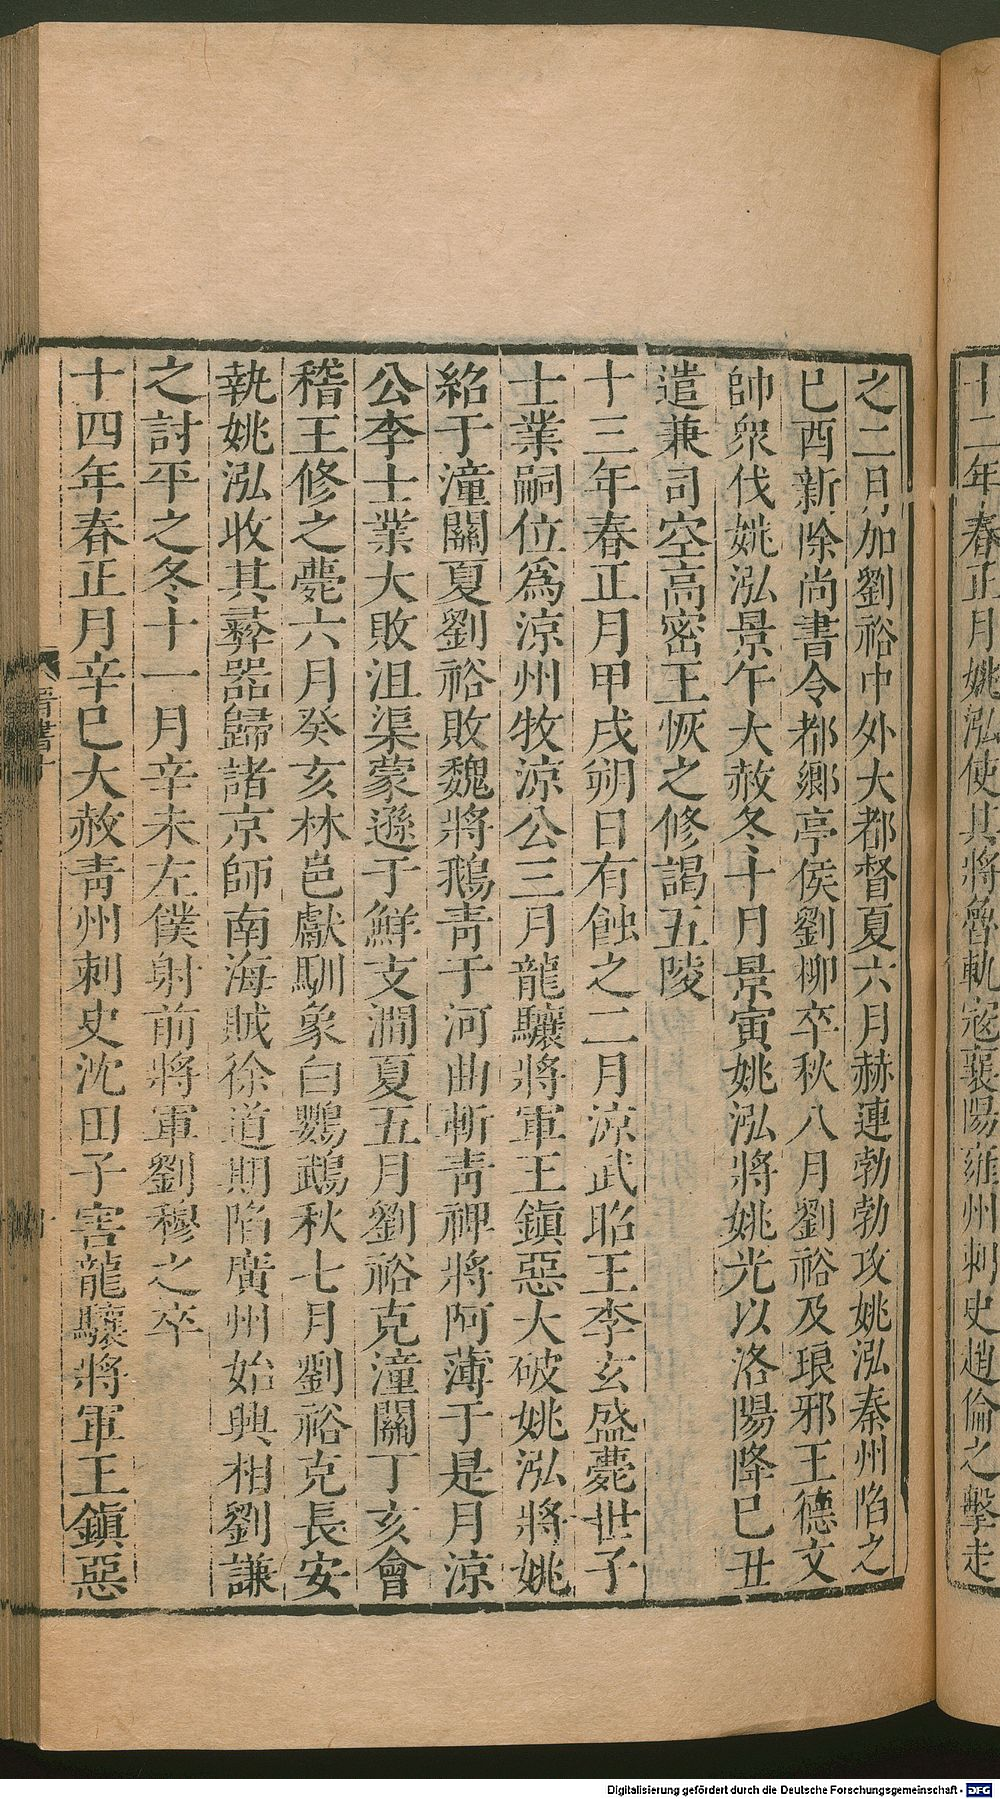 十二年春正月姚泓使其將魯軌寇襄陽雍州刺史趙倫之擊走
之二月加劉裕中外大都督夏六月赫連勃勃攻姚泓秦州陷之
己酉新除尚書令都鄉亭侯劉柳卒秋八月劉裕及琅邪王德文
帥衆伐姚泓景午大赦冬十月景寅姚泓將姚光以洛陽降己丑
遣兼司空高密王恢之修謁五陵
十三年春正月甲戌朔日有蝕之二月涼武昭王李玄盛薨世子
士業嗣位爲涼州牧涼公三月龍驤將軍王鎭惡大破姚泓將姚
紹于潼關夏劉裕敗魏將鵝靑于河曲斬靑裨將阿薄于是月涼
公李士業大敗沮渠蒙遜于鮮支澗夏五月劉裕克潼關丁亥會
稽王修之薨六月癸亥林邑獻馴象白鸚鵡秋七月劉裕克長安
執姚泓收其彝器歸諸京師南海賊徐道期陷廣州始興相劉謙
之討平之冬十一月辛未左僕射前將軍劉穆之卒
十四年春正月辛巳大赦靑州刺史沈田子害龍驤將軍王鎭惡
晉書十
Digitalisierung gefördert durch die Deutsche Forschungsgemeinschaft - DFG